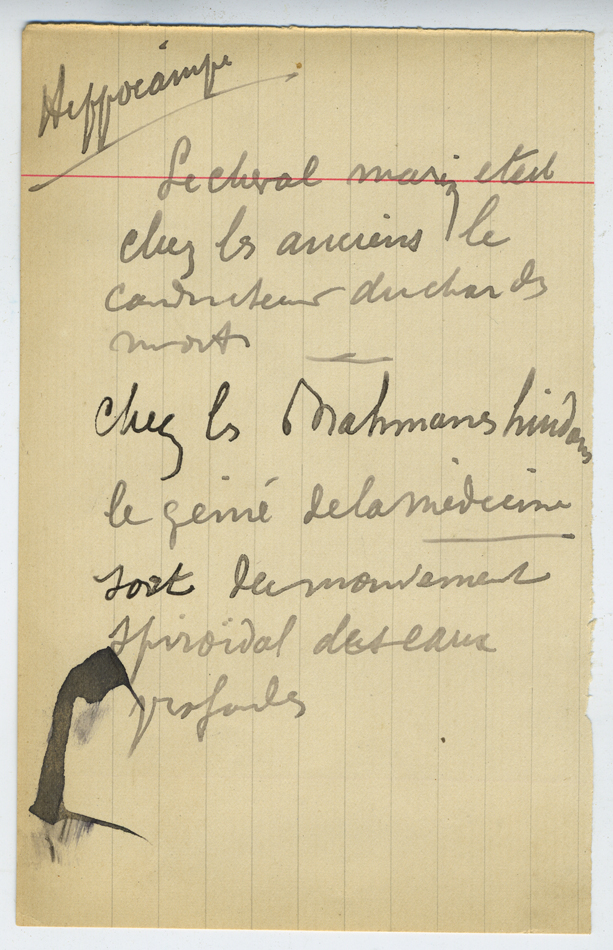 Hippocampe
Le cheval marin était
chez les anciens le
conducteur du char des
morts
chez les Brahmanes hindous
le génie de la médecine
sort du mouvement
spiroïdal des eaux
profondes